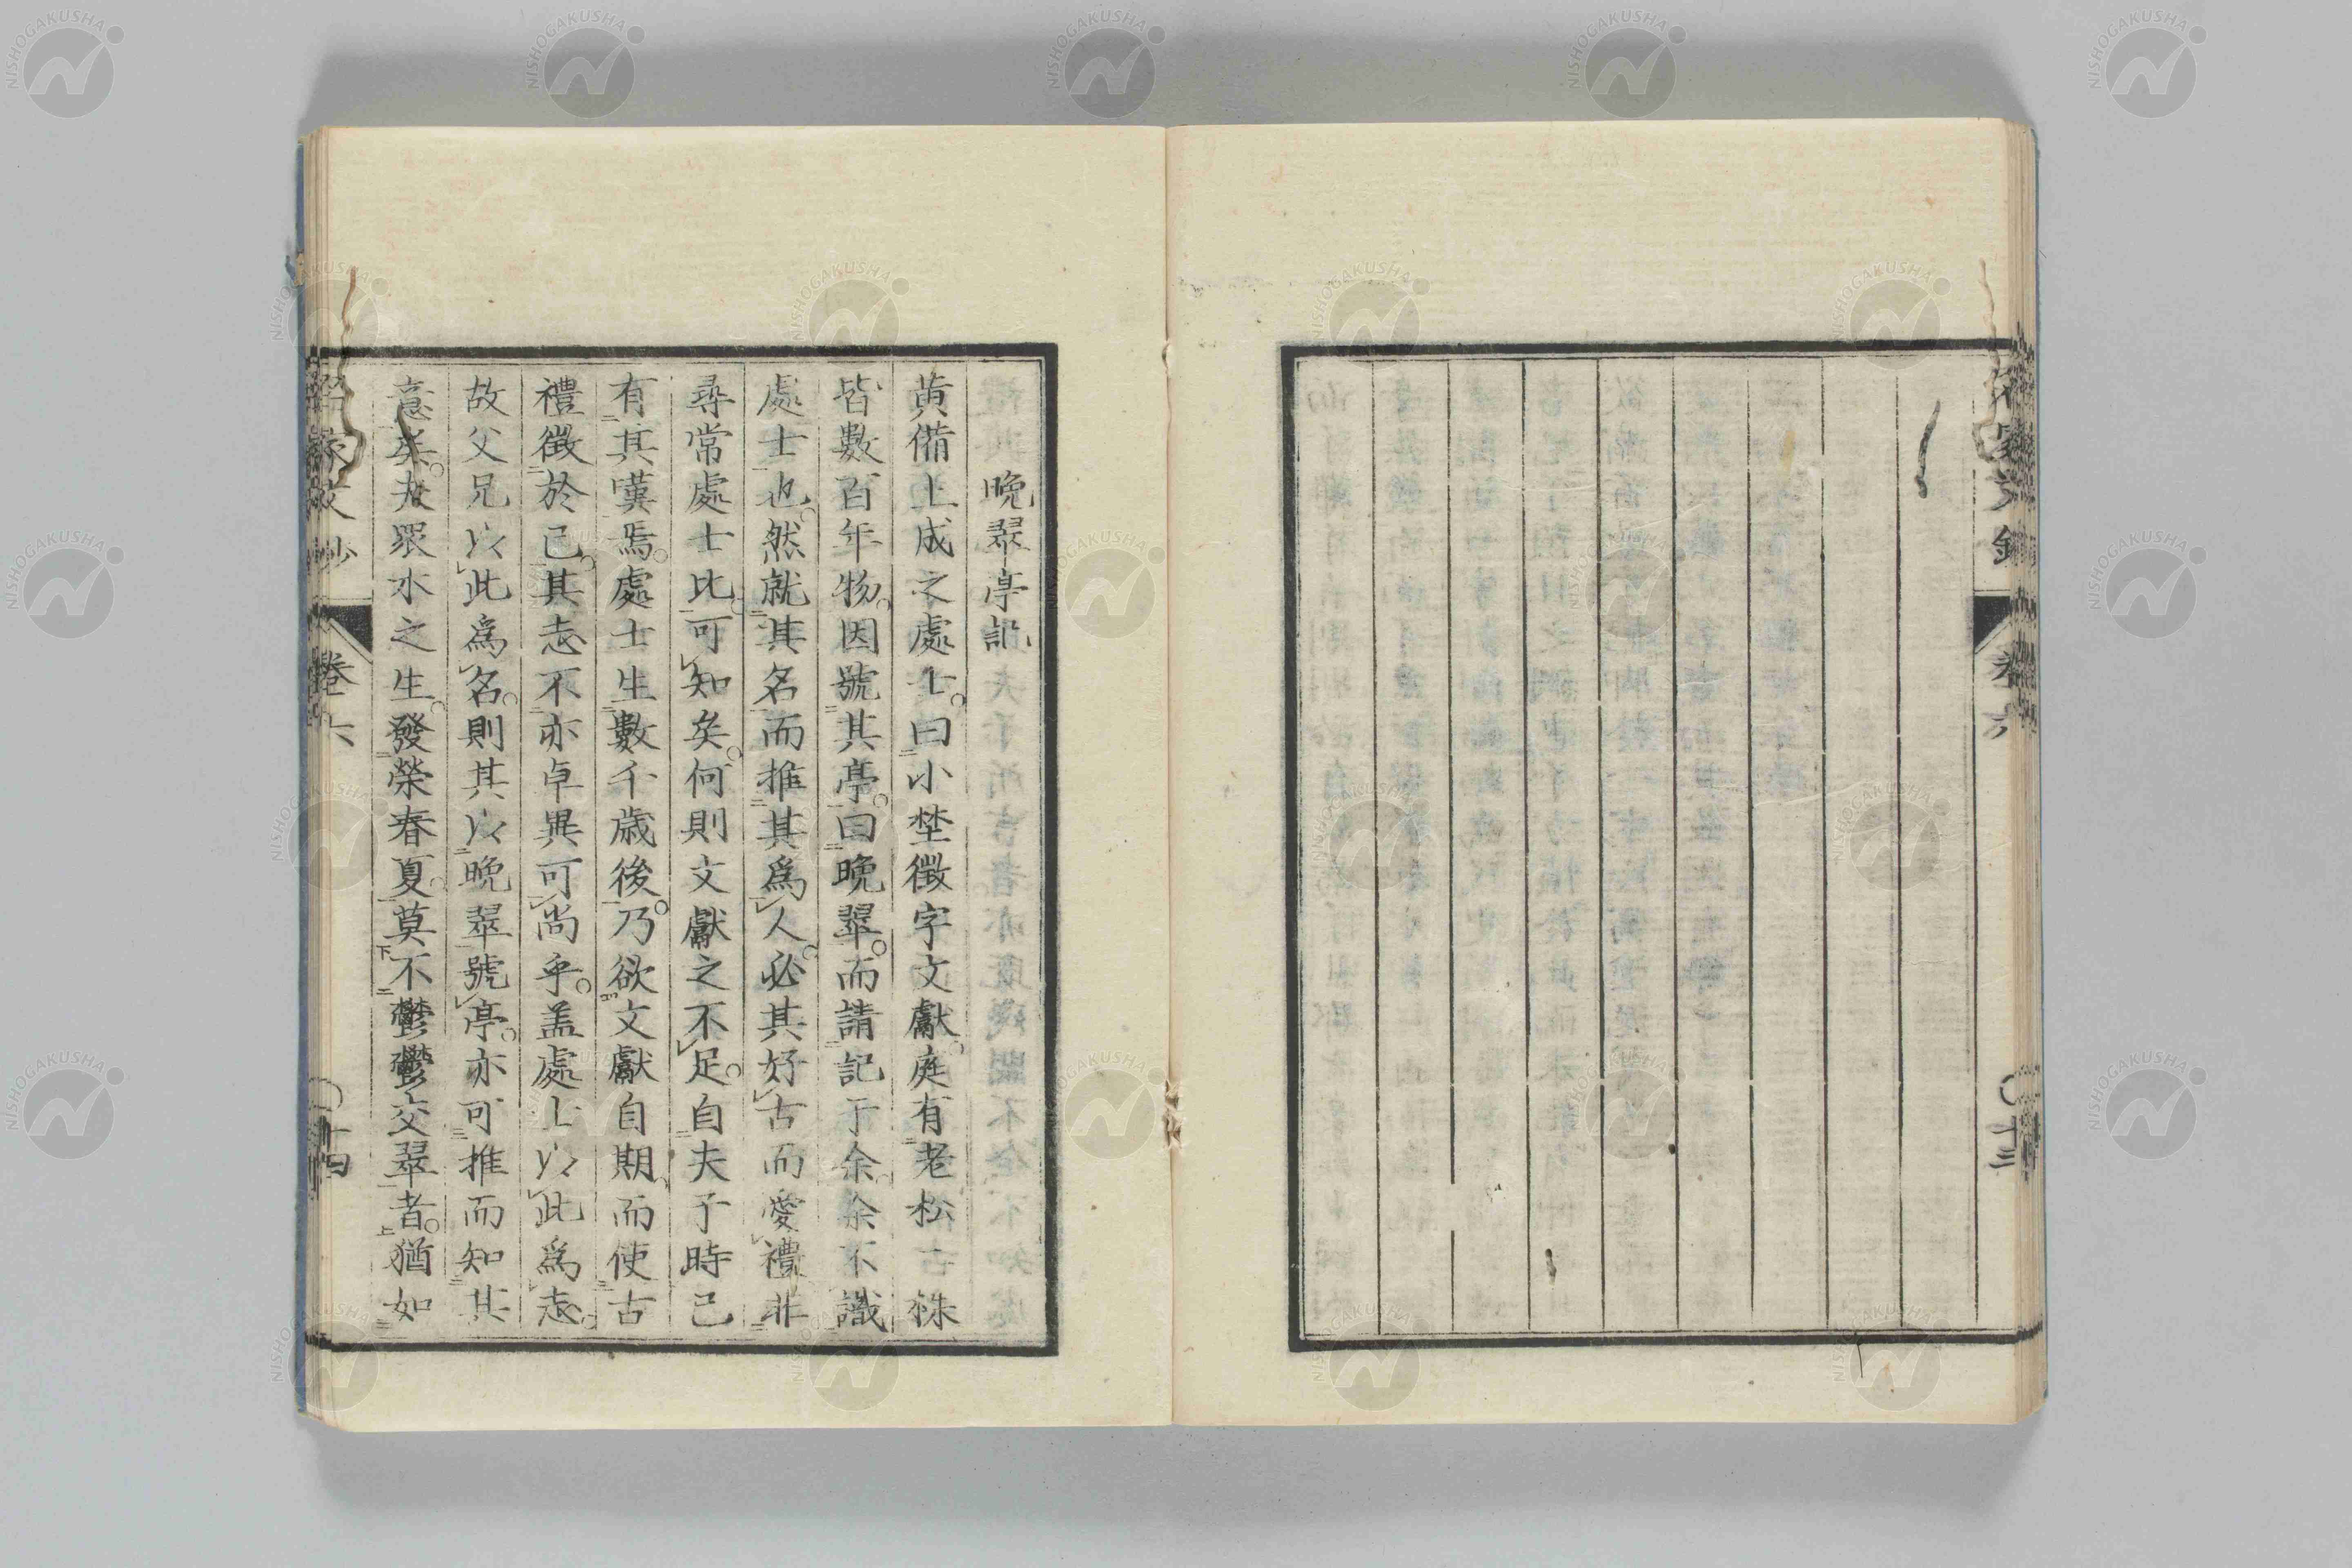 卷六
〇十三
晩翠亭記
黄備上成之處士曰小埜徴字文獻庭有老松古株
皆數百年物因號其亭曰晩翠而請記于余余不識
處士也然就其名而推其爲人必其好古而愛禮非
尋常處士比可知矣何則文獻之不足自夫子時已
有其嘆焉處士生數千歳後乃欲文獻自期而使古
禮徴於己其志不亦卓異可尚乎盖處士以此爲志
故父兄以此爲名則其以晩翠號亭亦可推而知其
意矣夫眾木之生發榮春夏莫不鬱鬱交翠者猶如
文鈔
卷六
〇十四